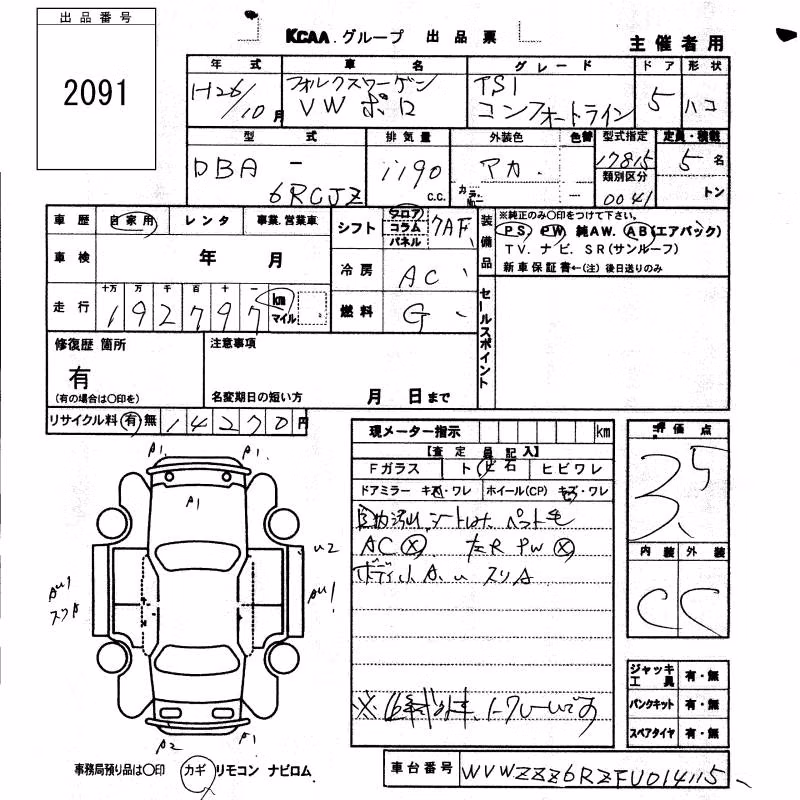 出品番号
2091
KCAA.グループ 出品票
主催者用
年式 車名 グレード ドア 形状
H26/10月 フォルクスワーゲン VWポロ TSI コンフォートライン 5 ハコ
型式 排気量 外装色 色替 型式指定 定員・積載
DBA - 6RCJZ 1190 c.c. アカ 17815 5名
カラーNo. 類別区分 0041 トン
車歴 自家用 レンタ 事業.営業車
シフト フロア コラム パネル 7AF
装備品
※純正のみ○印をつけて下さい。
PS PW 純AW. AB(エアバック)
TV. ナビ. SR(サンルーフ)
新車保証書←(注)後日送りのみ
車検 年 月
冷房 AC
走行 十万 万 千 百 十 一
192797 km マイル
燃料 G
セールスポイント
修復歴 箇所
有
(有の場合は○印を)
注意事項
名変期日の短い方 月 日まで
リサイクル料 有 無 14270円
現メーター指示 km
【査定員記入】
Fガラス トビ石 ヒビワレ
ドアミラー キズ・ワレ ホイール(CP) キズ・ワレ
AC ⊗ 左R PW ⊗
ボディ小A.u スリA
評価点
3.5
内装 外装
C C
A1 A1
A1
U2
AU1
スリA
AU1
A2 A1
ジャッキ工具 有・無
パンクキット 有・無
スペアタイヤ 有・無
事務局預り品は○印 カギ リモコン ナビロム
車台番号 WVWZZZ6RZFU014115